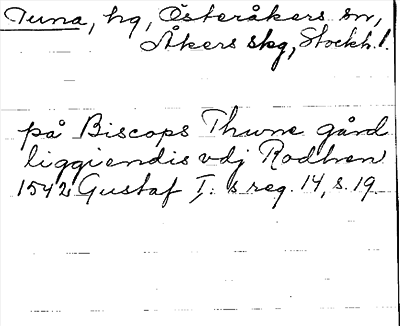 Tuna, hg, Österåkers sn,
Åkers skg, Stockh. l.
på Biscops Thune gård
liggiendis vdj Rodhen
1542 Gustaf I:s reg. 14, s. 19.